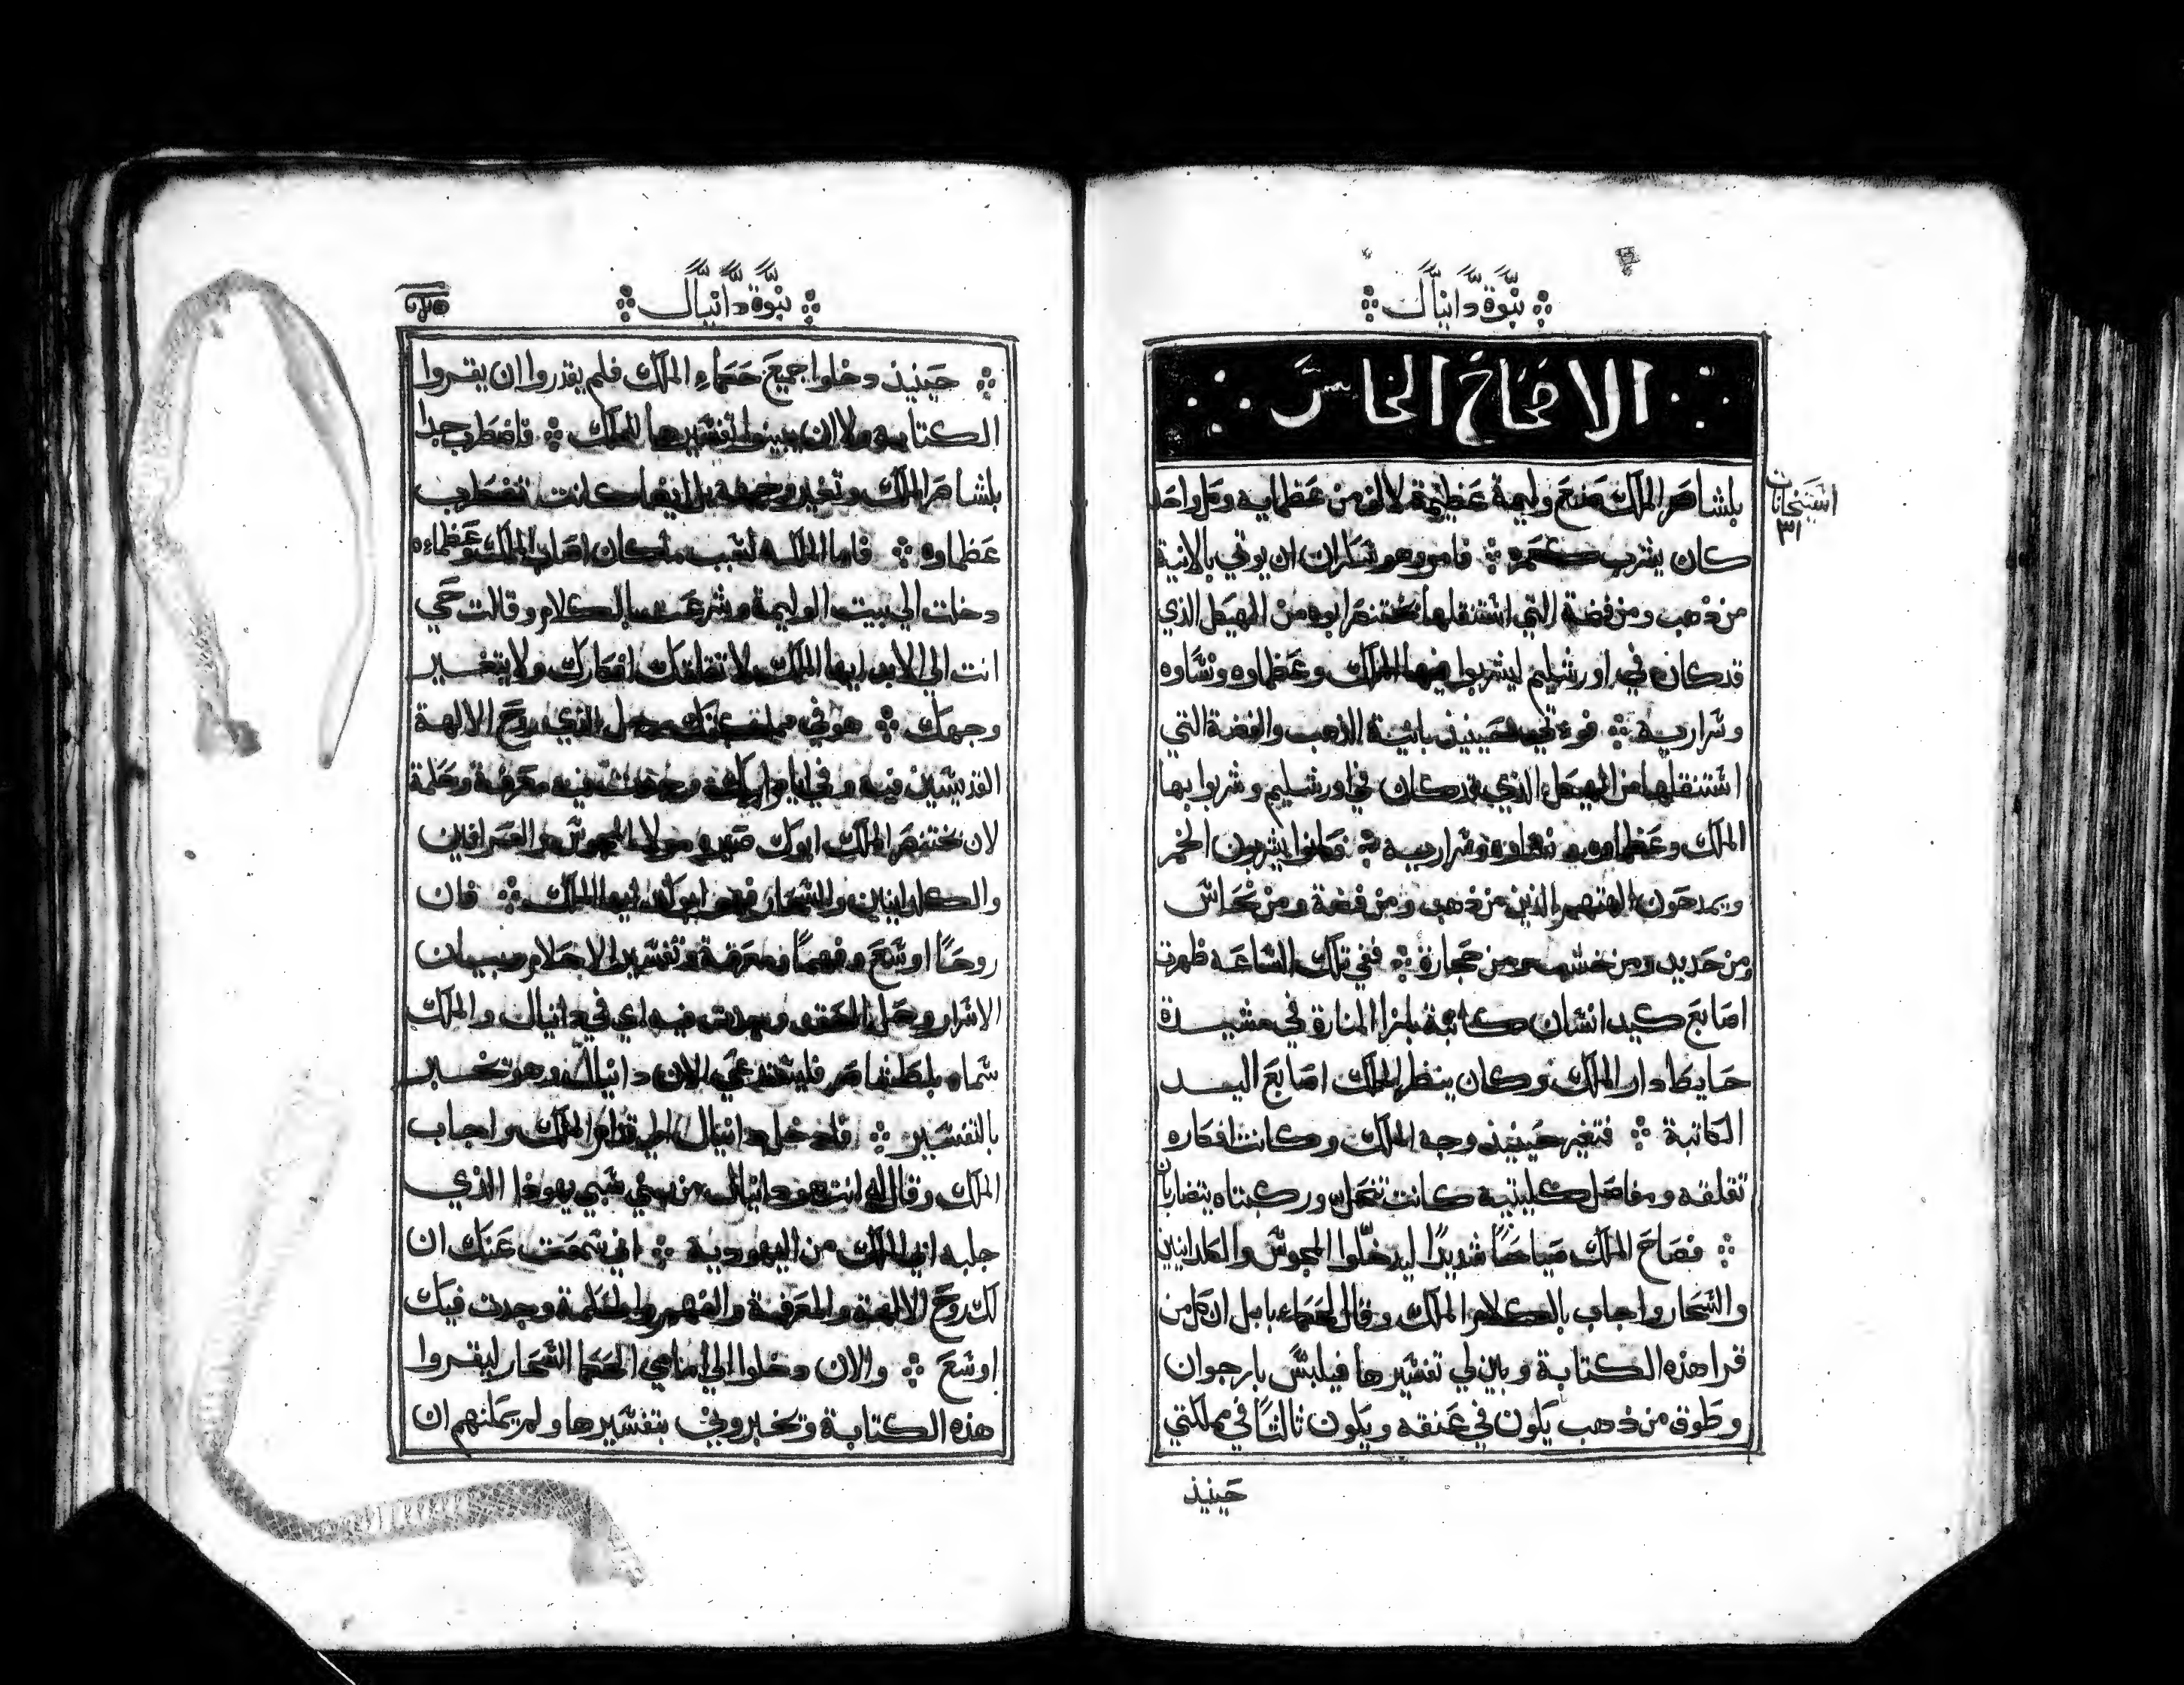 نبوة دانيال
الاصحاح الخامس
استيخانات
٣١
بلشاصر الملك صنع وليمة عظيمة لالف من عظمايه وكل واحد
كان يشرب كعمره فامر وهو سكران ان يوتي بالانية
من ذهب ومن فضة التي استنقلها بختنصر ابوه من الهيكل الذي
قد كان في اورشليم ليشربوا فيها الملك وعظماوه ونساوه
وسراريه فوتي حينيذ بانية الذهب والفضة التي
استنقلها من الهيكل الذي قد كان في اورشليم وشربوا بها
الملك وعظماوه ونساوه وسراريه فكانوا يشربون الخمر
ويمدحون الهتهم الذين من ذهب ومن فضة ومن نحاس
ومن حديد ومن خشب ومن حجارة ففي تلك الساعه ظهرت
اصابع كيد انسان كاتبة بازا المنارة في مشيدة
حايط دار الملك وكان ينظر الملك اصابع اليد
الكاتبة فتغير حينيذ وجه الملك وكانت افكاره
تقلقه ومفاصل كليتيه كانت تنحل وركبتاه يتضاربان
فصاح الملك صياحاً شديدًا ليدخلوا المجوس والكلدانيين
والسحار واجاب بالكلام الملك وقال لحكماء بابل ان كل من
قرا هذه الكتابة وبين لي تفسيرها فيلبس بارجوان
وطوق من ذهب يكون في عنقه ويكون ثالثاً في مملكتي
حينيذ
نبوة دانيال
حينيذ دخلوا جميع حكماء الملك فلم يقدروا ان يقروا
الكتابه ولا ان يبينوا تفسيرها للملك فاضطرب جدا
بلشاصر الملك وتغير وجهه بل ايضا كانت تضطرب
عظماوه فاما الملكه لسبب ما كان اصاب الملك وعظماءه
دخلت الي بيت الوليمة وشرعت بالكلام وقالت حي
انت الي الابد ايها الملك ولا تقلقك افكارك ولا يتغير
وجهك هو في مملكتك رجل الذي روح الالهة
القديسين فيه وفي ايام ابيك وجدت فيه معرفة وحكمة
لان بختنصر الملك ابوك صيره مولا المجوس والعرافين
والكلدانيين والسحار فهو ابوك ايها الملك فان
روحًا اوسع وفهمًا ومعرفة وتفسير الاحلام وبيان
الاسرار وحل العقد وجدت فيه اي في دانيال والملك
سماه بلطشاصر فليستدعي الان دانيال وهو يخبر
بالتفسير فادخل دانيال الي قدام الملك واجاب
الملك وقال له انت هو دانيال من بني سبي يهوذا الذي
جلبه ابي الملك من اليهودية اني سمعت عنك ان
لك روح الالهة والمعرفة والفهم والحكمة وجدت فيك
اوسع والان دخلوا الي امامي الحكما السحار ليقروا
هذه الكتابة وتخبروني بتفسيرها ولم يمكنهم ان